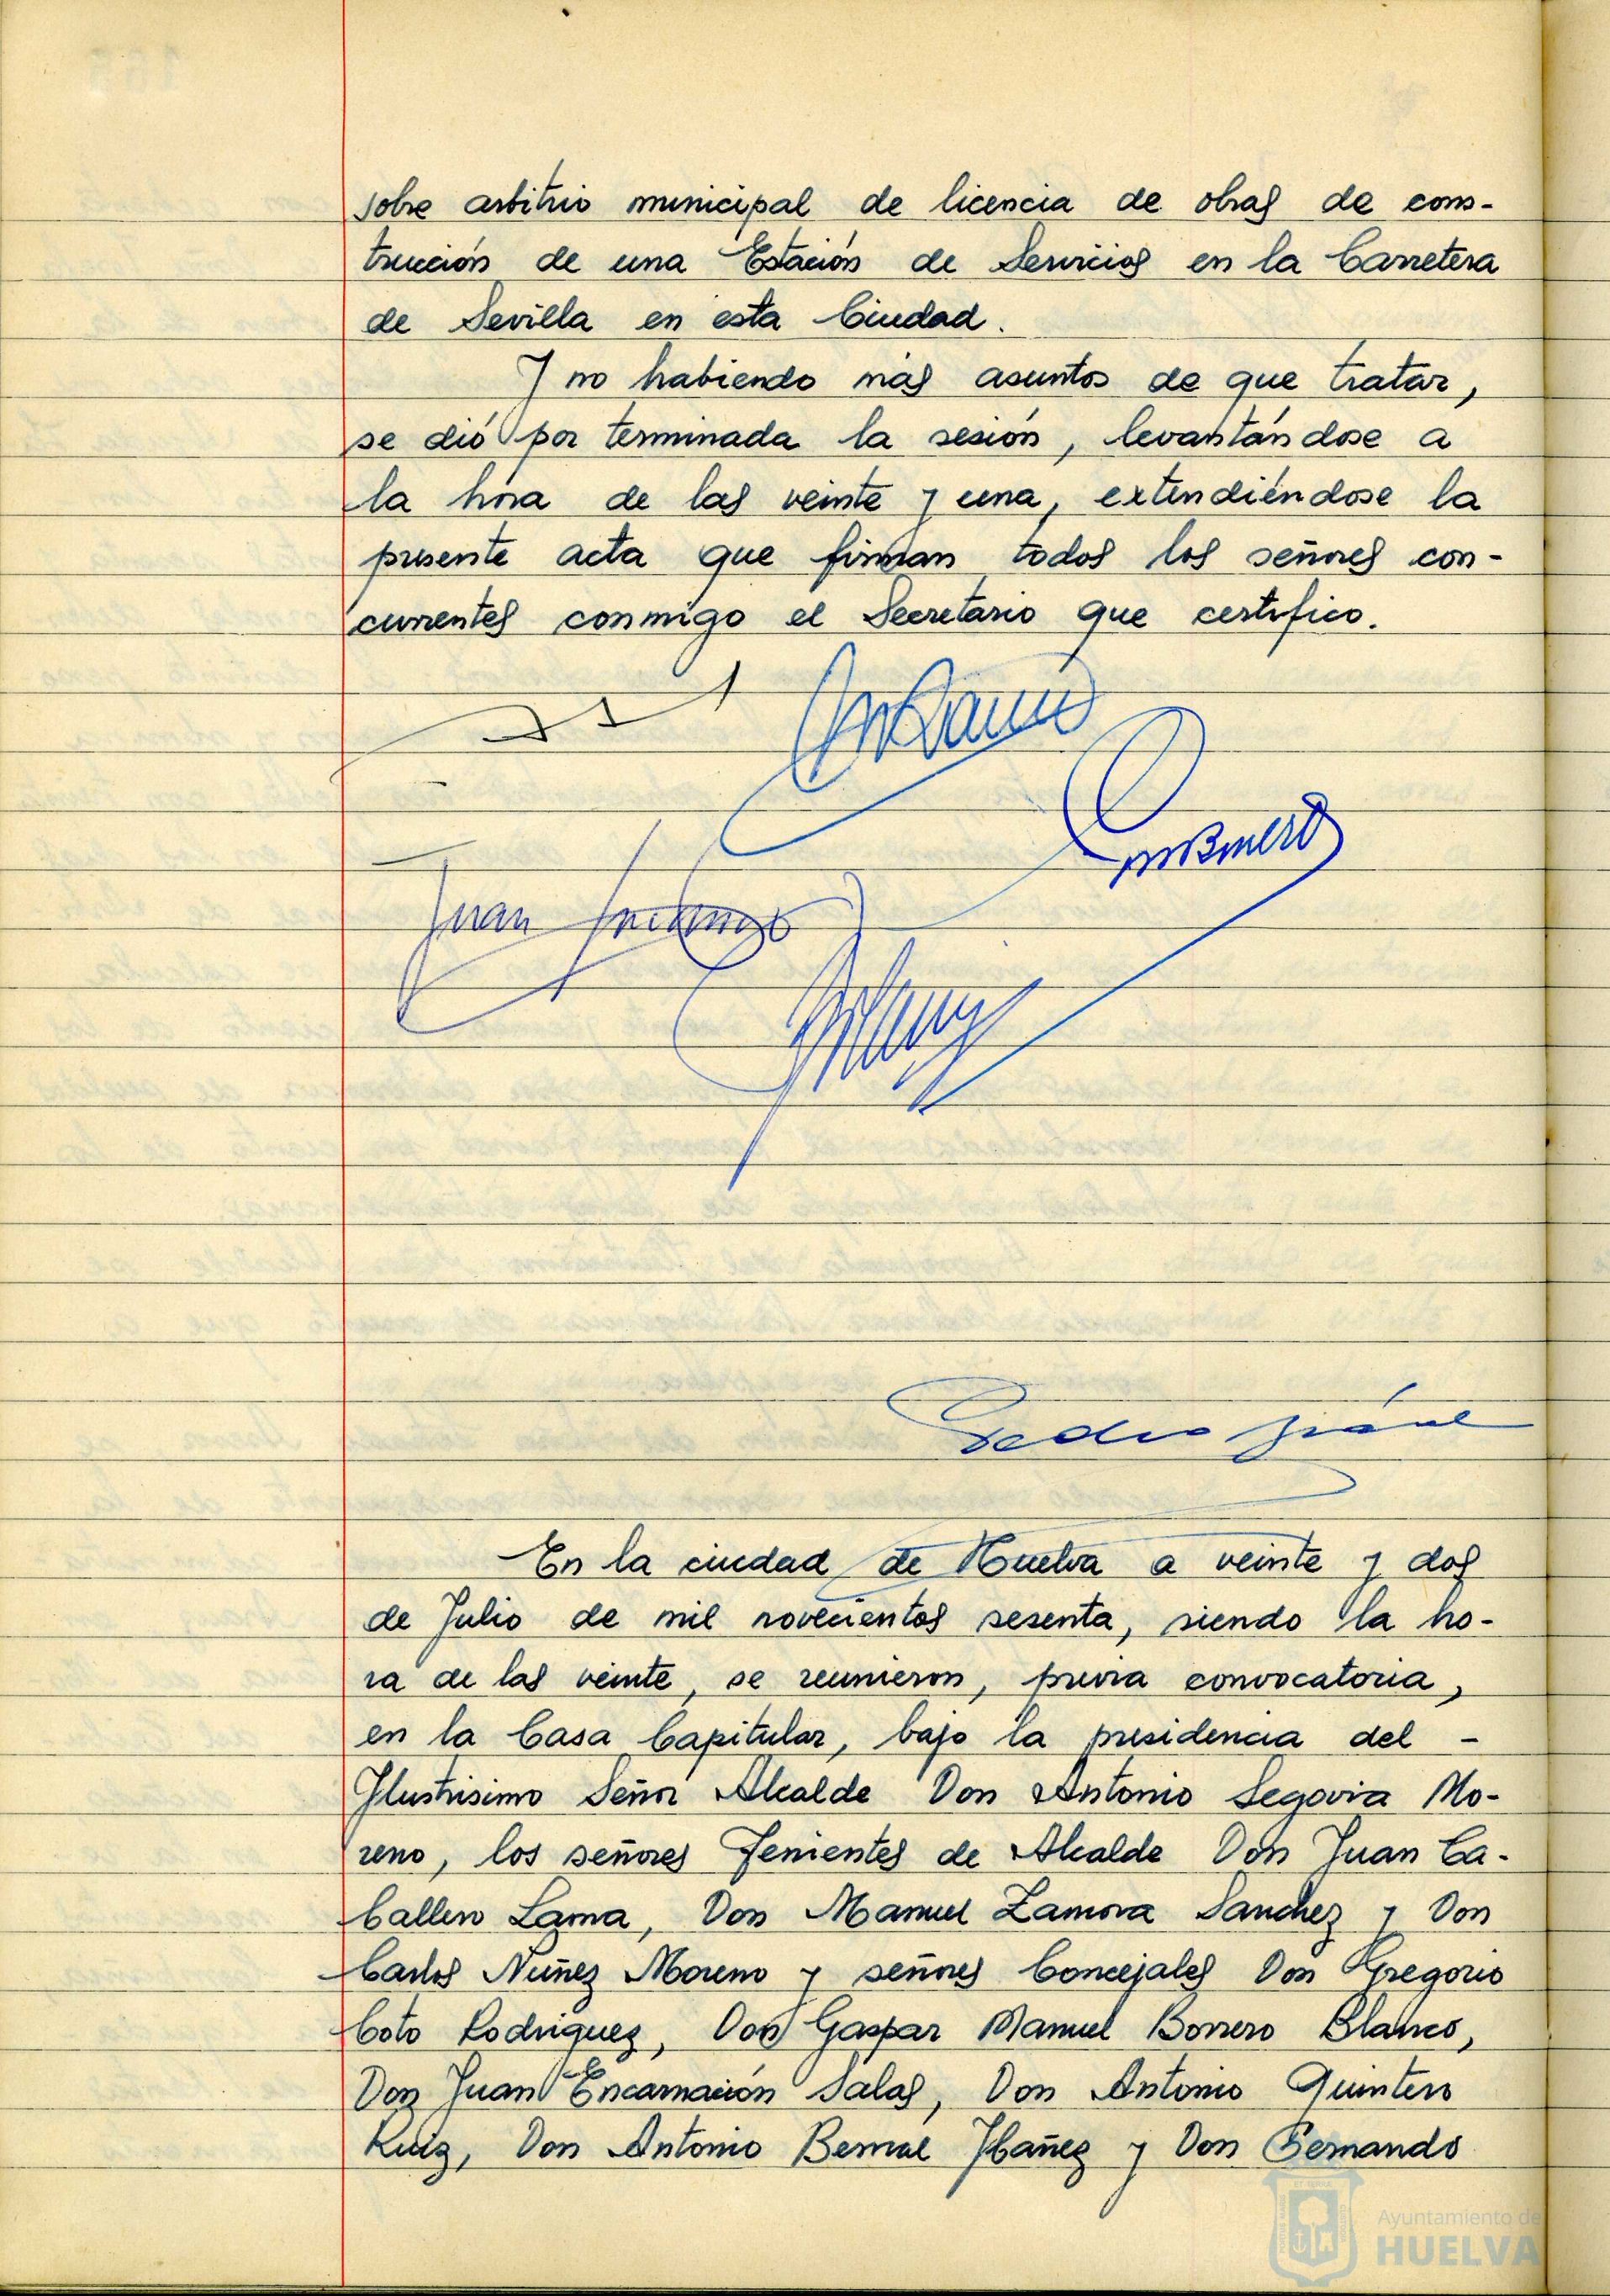 sobre arbitrio municipal de licencia de obras de cons-
trucción de una Estación de Servicios en la Carretera
de Sevilla en esta Ciudad.
Y no habiendo más asuntos de que tratar,
se dió por terminada la sesión, levantándose a
la hora de las veinte y una, extendiéndose la
presente acta que firman todos los señores con-
currentes conmigo el Secretario que certifico.
Juan
Pedro
En la ciudad de Huelva a veinte y dos
de Julio de mil novecientos sesenta, siendo la ho-
ra de las veinte, se reunieron, previa convocatoria,
en la Casa Capitular, bajo la presidencia del -
Ilustrisimo Señor Alcalde Don Antonio Segovia Mo-
reno, los señores Tenientes de Alcalde Don Juan Ca-
ballero Lama, Don Manuel Zamora Sanchez y Don
Carlos Nuñez Moreno y señores Concejales Don Gregorio
Coto Rodriguez, Don Gaspar Manuel Borrero Blanco,
Don Juan Encarnación Salas, Don Antonio Quintero
Ruiz, Don Antonio Bernal Ibañez y Don Bernando
Ayuntamiento de
HUELVA